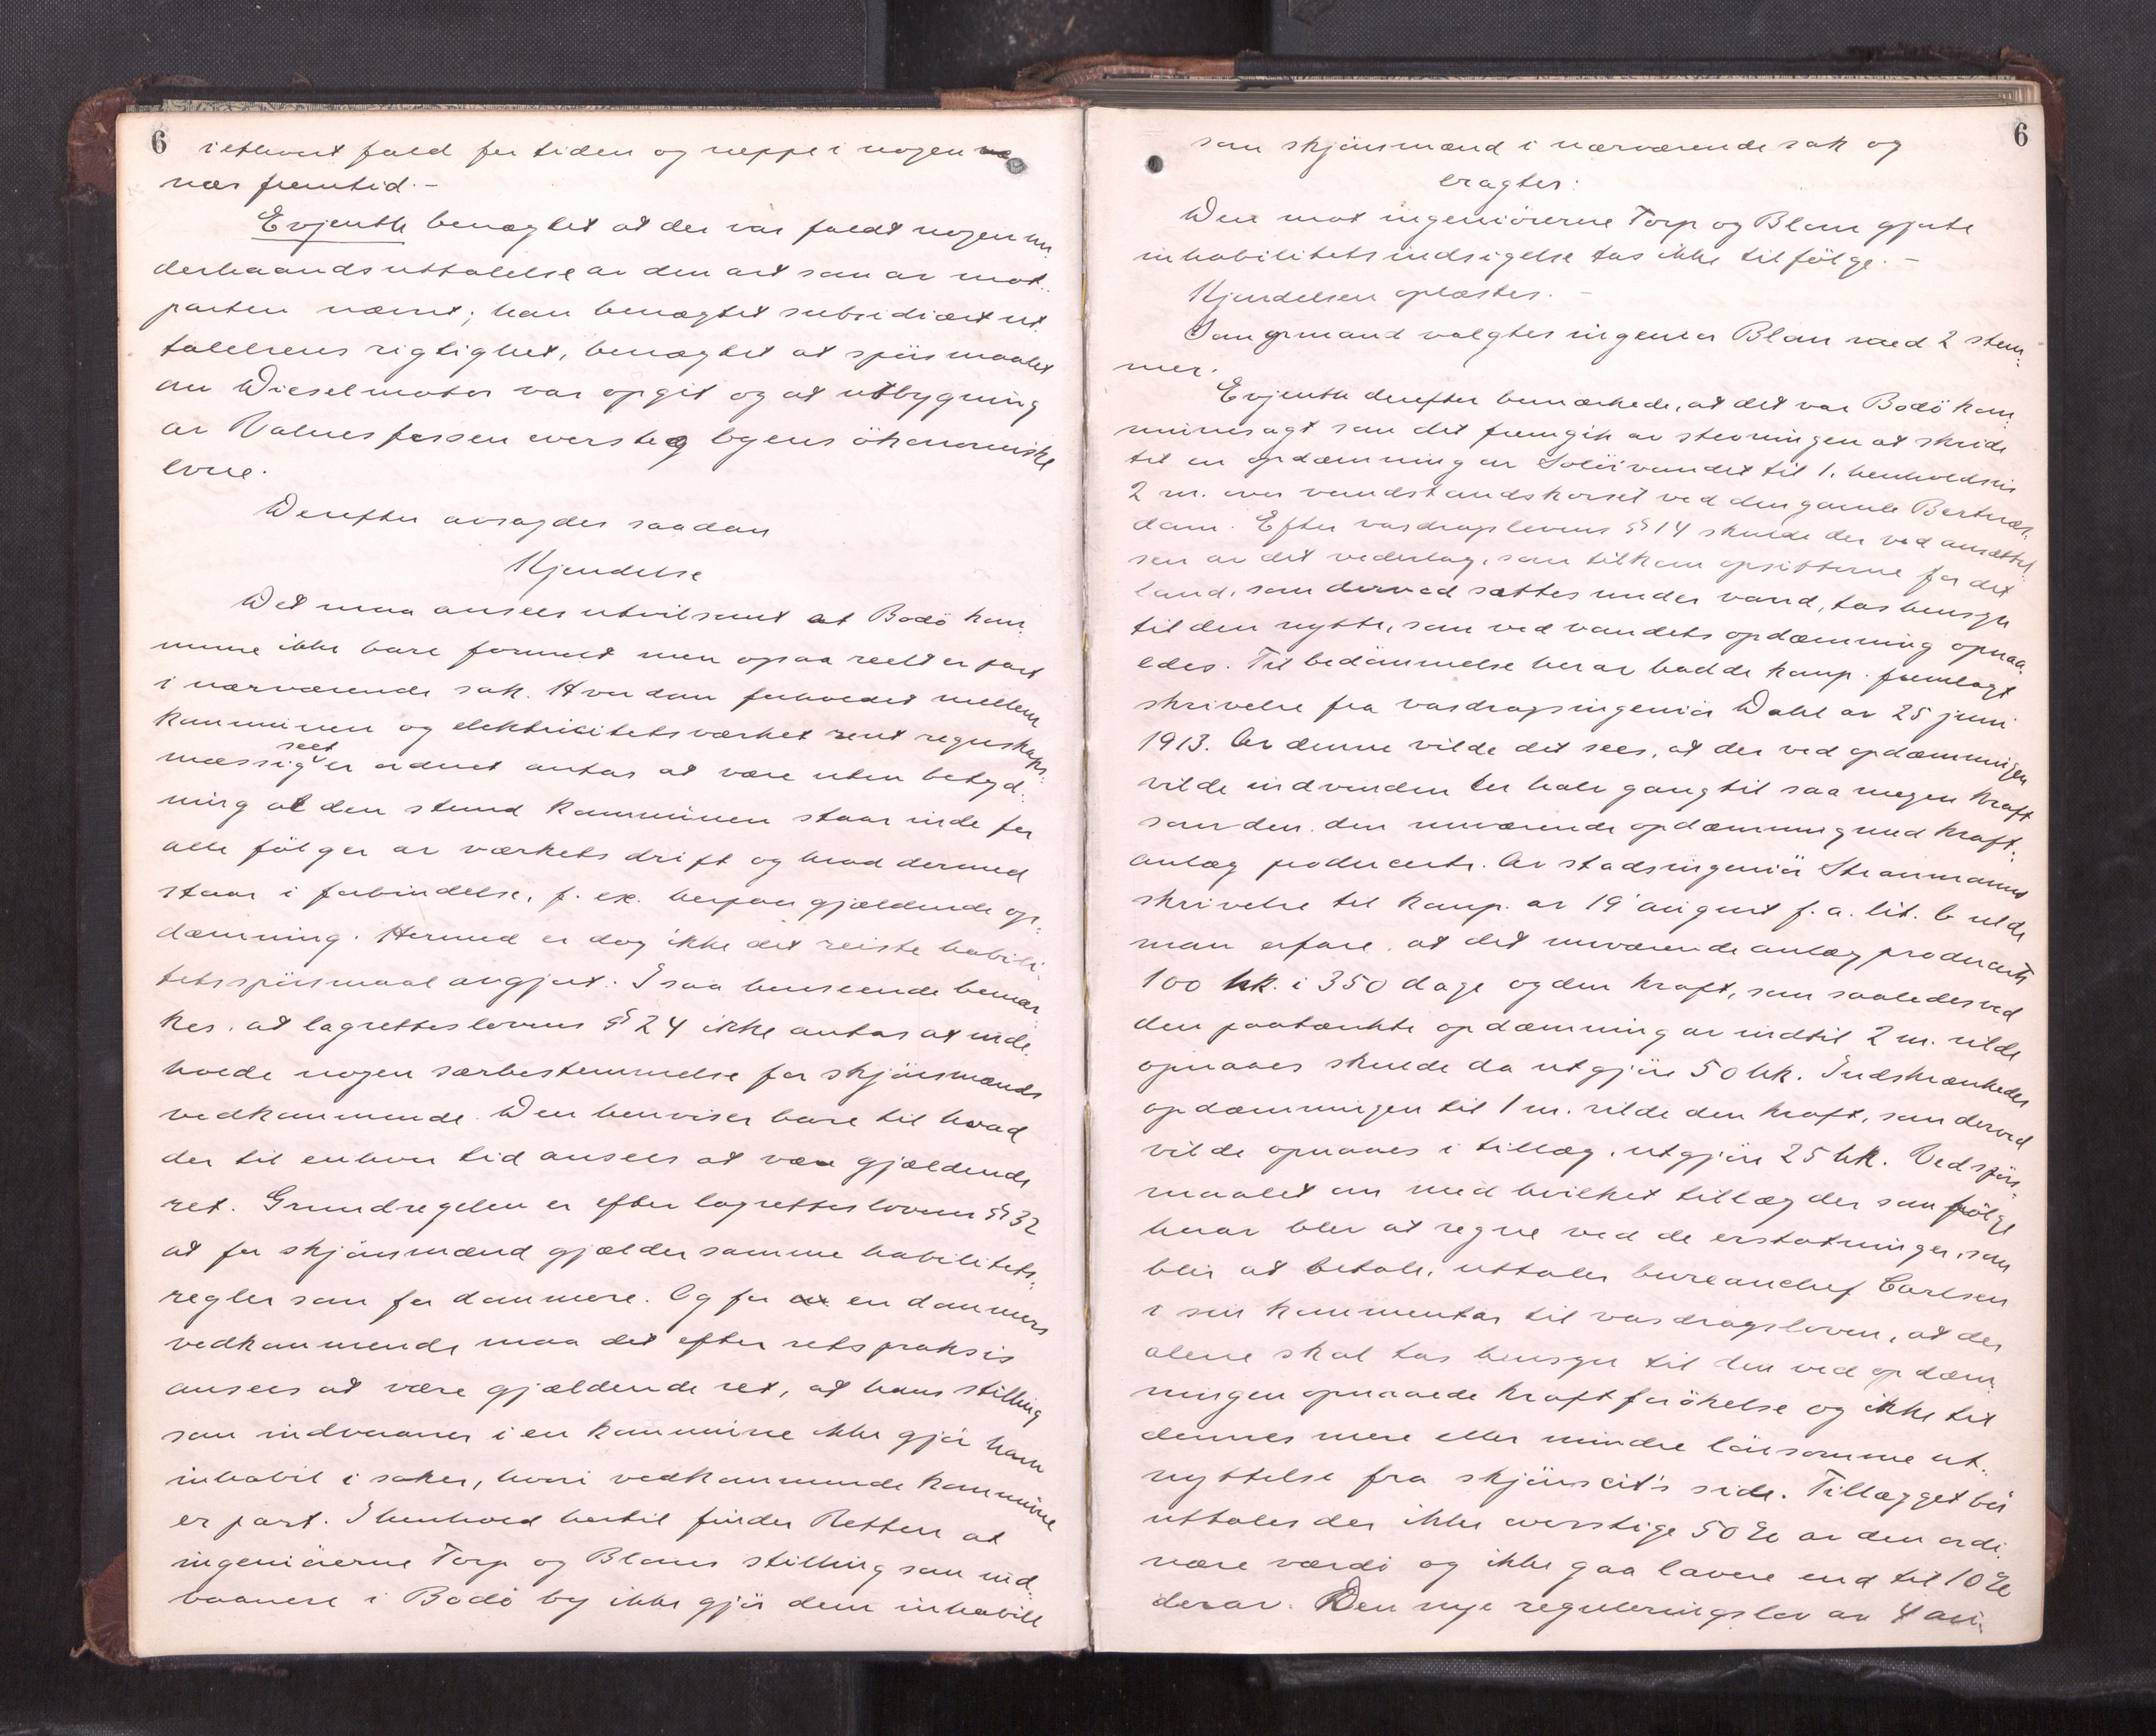 6
iethvert fald for tiden og neppe i nogen
nær fremtid.-
Evjenth benægtet at der var faldt nogen un-
derhaandsuttalelse av den art som av mot-
parten nævnt; han benægtet subsidiært ut-
talelsens rigtighet, benægtet at spörsmaalet
om Dieselmotor var opgit og at utbygning
av Valnesforsen oversteg byens ökonomiske
evne.
Derefter avsagdes saadan
Kjendelse
Det maa ansees utvilsomt at Bodö kom-
mune ikke bare formelt men ogsaa reelt er part
i nærværende sak. Hvordan forholdet mellem
kommunen og elektricitetsværket rent regnskaps-
mæssig seet er ordnet antas at være uten betyd-
ning al den stund kommunen staar inde for
alle fölger av værkets drift og hvad dermed
staar i forbindelse, f. ex. herpaa gjældende op-
dæmning. Hermed er dog ikke det reiste habili-
tetsspörsmaal avgjort. I saa henseende bemær-
kes, at lagretteslovens § 24 ikke antas at inde-
holde nogen særbestemmelse for skjönsmænds
vedkommende. Den henviser bare til hvad
der til enhver tid ansees at være gjældende
ret. Grundregelen er efter lagretteslovens § 32
at for skjönsmænd gjælder samme habilitets-
regler som for dommere. Og for en dommers
vedkommende maa det efter retspraksis
ansees at være gjældende ret, at hans stilling
som indvaaner i en kommune ikke gjör ham
inhabil i saker, hvori vedkommende kommune
er part. I henhold hertil finder Retten at
ingeniörerne Torp og Bloms stilling som ind-
vaanere i Bodö by ikke gjör dem inhabile
6
som skjönsmænd i nærværende sak og
eragtes:
Den mot ingeniörerne Torp og Blom gjorte
inhabilitetsindsigelse tas ikke tilfölge.-
Kjendelsen oplæstes.-
Som formand valgtes ingeniör Blom med 2 stem-
mer.
Evjenth derefter bemærkede, at det var Bodö kom-
munes agt som det fremgik av stevningen at skride
til en opdæmning av Solöivandet til 1, henholdsvis
2 m. over vandstandskorset ved den gamle Bertnes-
dam. Efter vasdragslovens § 14 skulde der ved ansættel-
sen av det vederlag, som tilkom opsitterne for det
land, som derved sættes under vand, tas hensyn
til den nytte, som ved vandets opdæmning opnaa-
edes. Til bedömmelse herav hadde komp. fremlagt
skrivelse fra vasdragsingeniör Dahl av 25 juni
1913. Av denne vilde det sees, at der ved opdæmningen
vilde indvindes en halv gang til saa megen kraft
som den, den nuværende opdæmning med kraft-
anlæg producerte. Av stadsingeniör Straumanns
skrivelse til komp. av 19 august f. a. lit. b vilde
man erfare, at det nuværende anlæg producerte
100 hk. i 350 dage og den kraft, som saaledes ved
den paatænkte opdæmning av indtil 2 m. vilde
opnaaes skulde da utgjöre 50 hk. Indskrænkedes
opdæmningen til 1 m. vilde den kraft, som derved
vilde opnaaes i tillæg, utgjöre 25 hk. Ved spörs-
maalet om med hvilket tillæg der som fölge
herav blev at regne ved de erstatninger, som
blir at betale, uttaler bureauchef Carlsen
i sin kommentar til vasdragsloven, at der
alene skal tas hensyn til den ved opdæm-
ningen opnaaede kraftforökelse og ikke til
dennes mere eller mindre lönsomme ut-
nyttelse fra skjönscit's side. Tillægget bör
uttales der ikke overstige 50 % av den ordi-
nære værdi og ikke gaa lavere end til 10 %
derav. Den nye reguleringslov av 4 au-